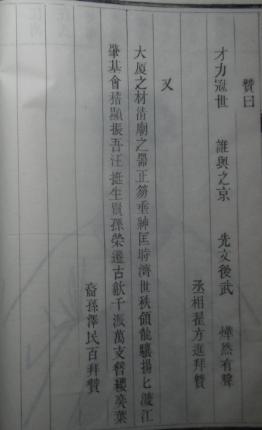 贊曰
才力冠世 誰與之京 先文後武 燁然有聲
丞相翟方進拜贊
又
大厦之材清廟之器正笏垂紳匡時濟世秩領龍驤揚匕渡江
肇基會稽顯振吾汪挺生賢孫榮遷古歙千派萬支簪纓奕葉
裔孫澤民百拜贊